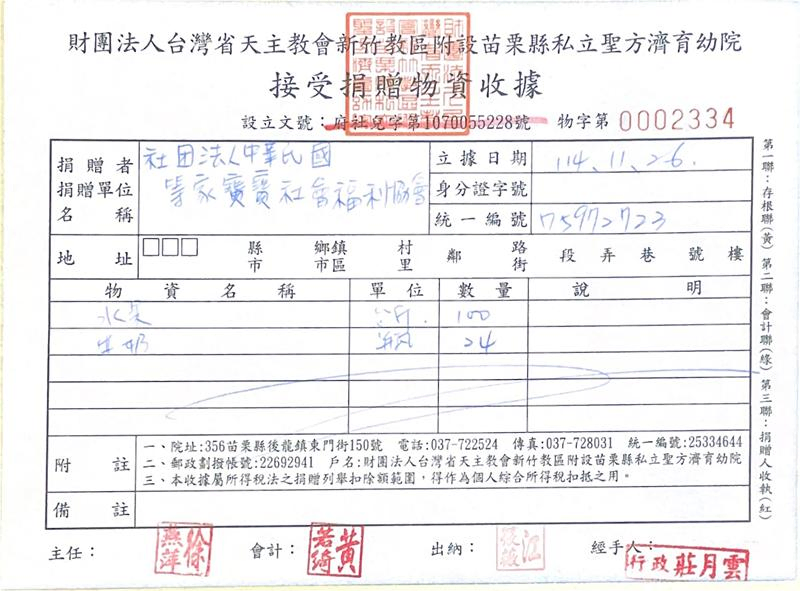 財團法人台灣省天主教會新竹教區附設苗栗縣私立聖方濟育幼院
接受捐贈物資收據
設立文號：府社兒字第1070055228號 物字第 0002334
捐贈者
捐贈單位
名稱
社团法人中華民國
等家寶寶社會福利協會
立據日期 114.11.26.
身分證字號
統一編號 75972723
地址 縣市 鄉鎮市區 村里 鄰 路街 段 弄 巷 號 樓
物資名稱 單位 數量 說明
水果 公斤. 100
牛奶 瓶 24
附註
一、院址:356苗栗縣後龍鎮東門街150號 電話:037-722524 傳真:037-728031 統一編號:25334644
二、郵政劃撥帳號:22692941 戶名:財團法人台灣省天主教會新竹教區附設苗栗縣私立聖方濟育幼院
三、本收據屬所得稅法之捐贈列舉扣除額範圍，得作為個人綜合所得稅扣抵之用。
備註
主任： 徐燕萍 會計： 黃若綺 出納： 江 經手人： 行政莊月雲
第一聯：存根聯(黃) 第二聯：會計聯(綠) 第三聯：捐贈人收執(紅)